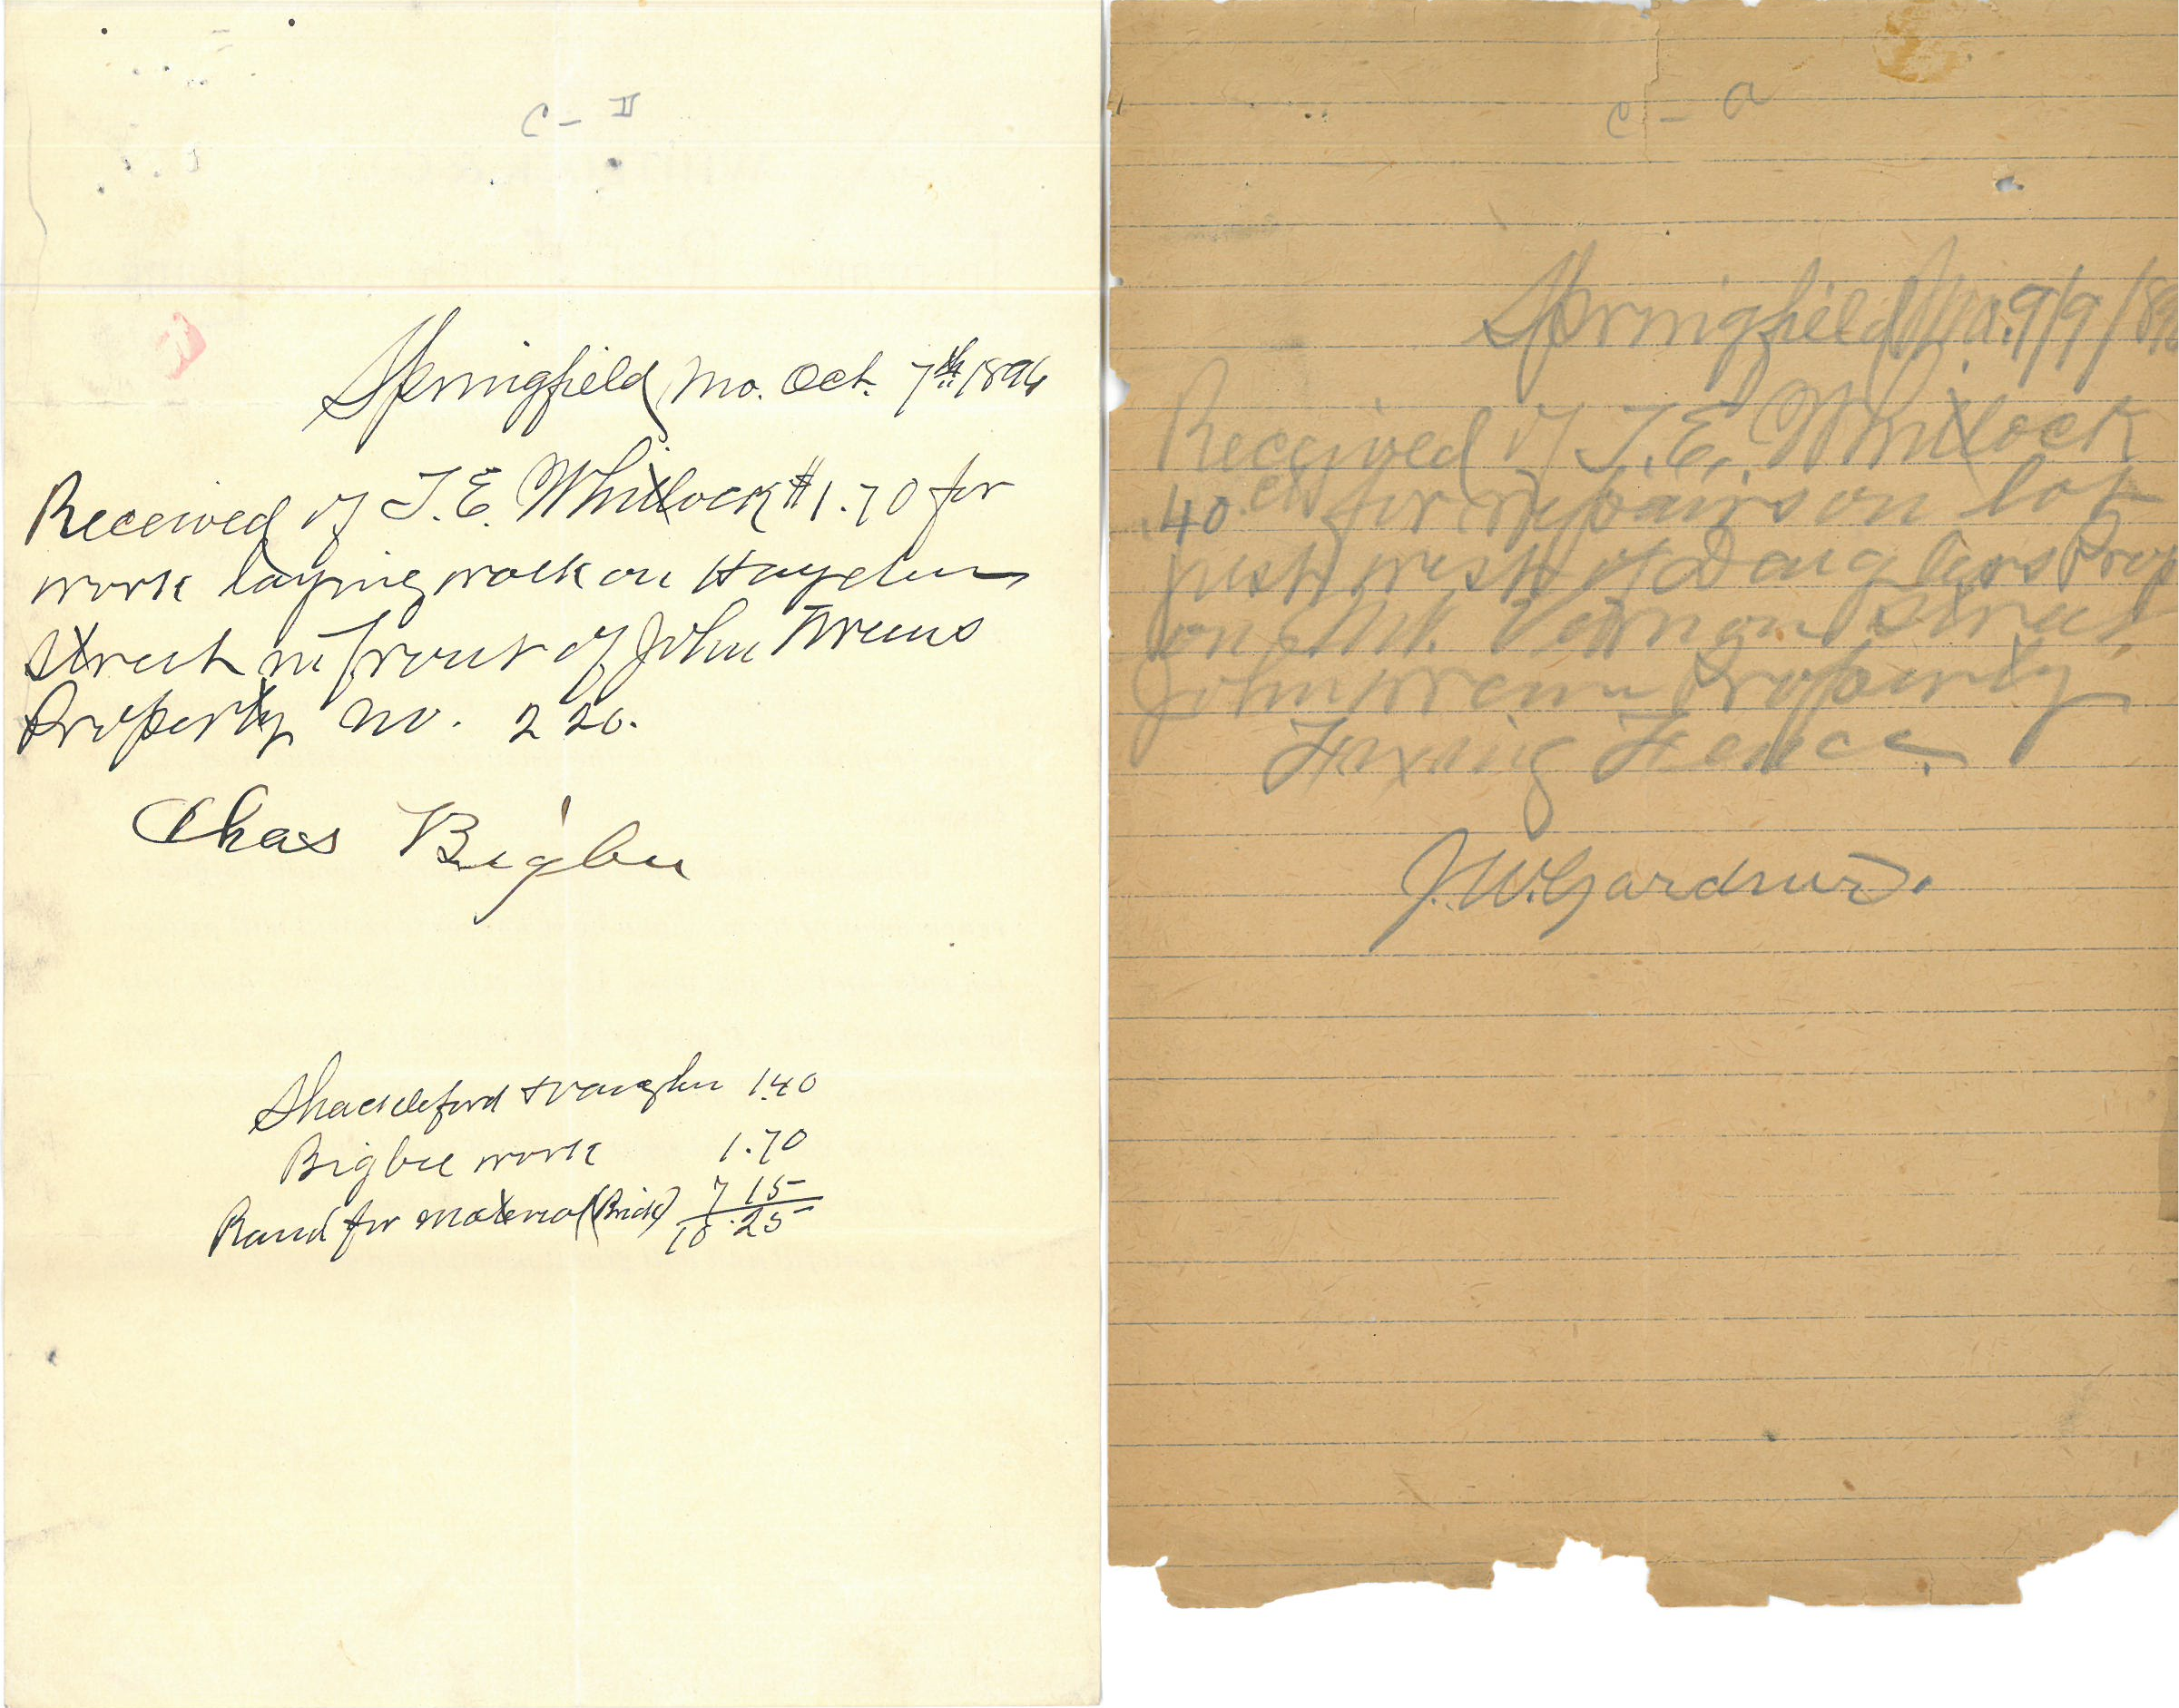 C - II
Springfield Mo. Oct. 7th 1896
Received of T. E. Whitlock $1.70 for
work laying walk on Hayden
Street in front of John Wrens
Property No. 220.
Chas Bigbee
Shackleford & Vaughn 1.40
Bigbee work 1.70
Rand for material (Brick) 7 15
10.25
C - a
Springfield Mo. 9/9/189
Received of T. E. Whitlock
40 cts for repairs on lot
just west of Douglass Prop
on Mt. Vernon Street
John Wrenn Property
Fixing Fence.
J. W. Gardner.